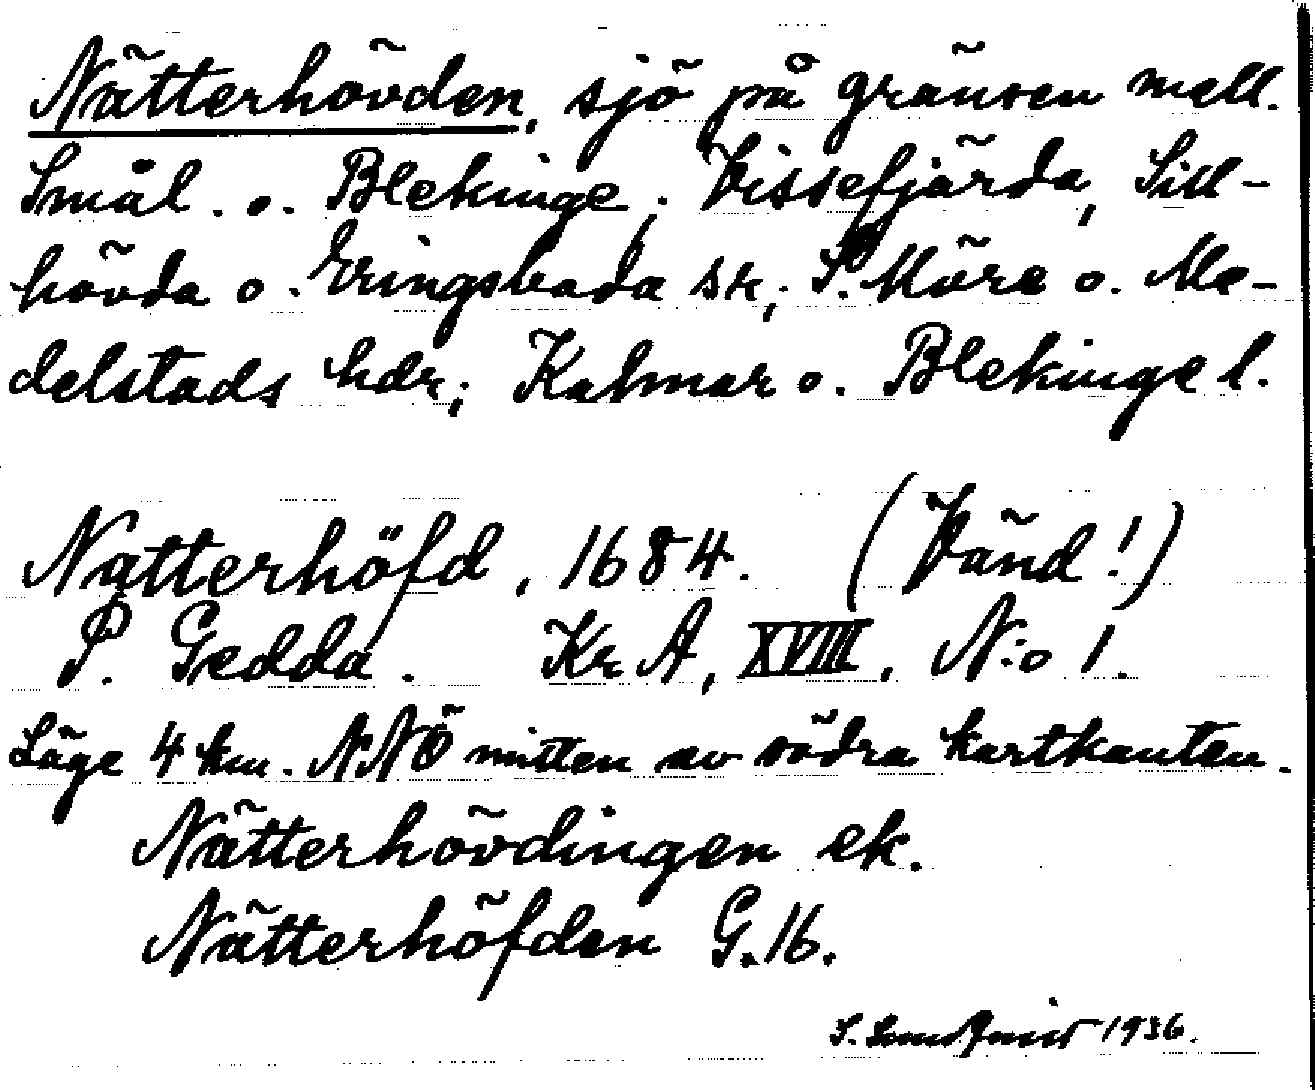 Nätterhövden, sjö på gränsen mell.
Smål. o. Blekinge; Vissefjärda, Sill-
hövda o. Eringsboda sk; S. Möre o. Me-
delstads hdr; Kalmar o. Blekinge l.
Natterhöfd, 1684. (Vänd!)
P. Gedda. Kr A, XVIII, N:o 1.
Läge 4 km. NNÖ mitten av södra kartkanten.
Nätterhövdingen ek.
Nätterhöfden G.16.
S. Sundqvist 1936.